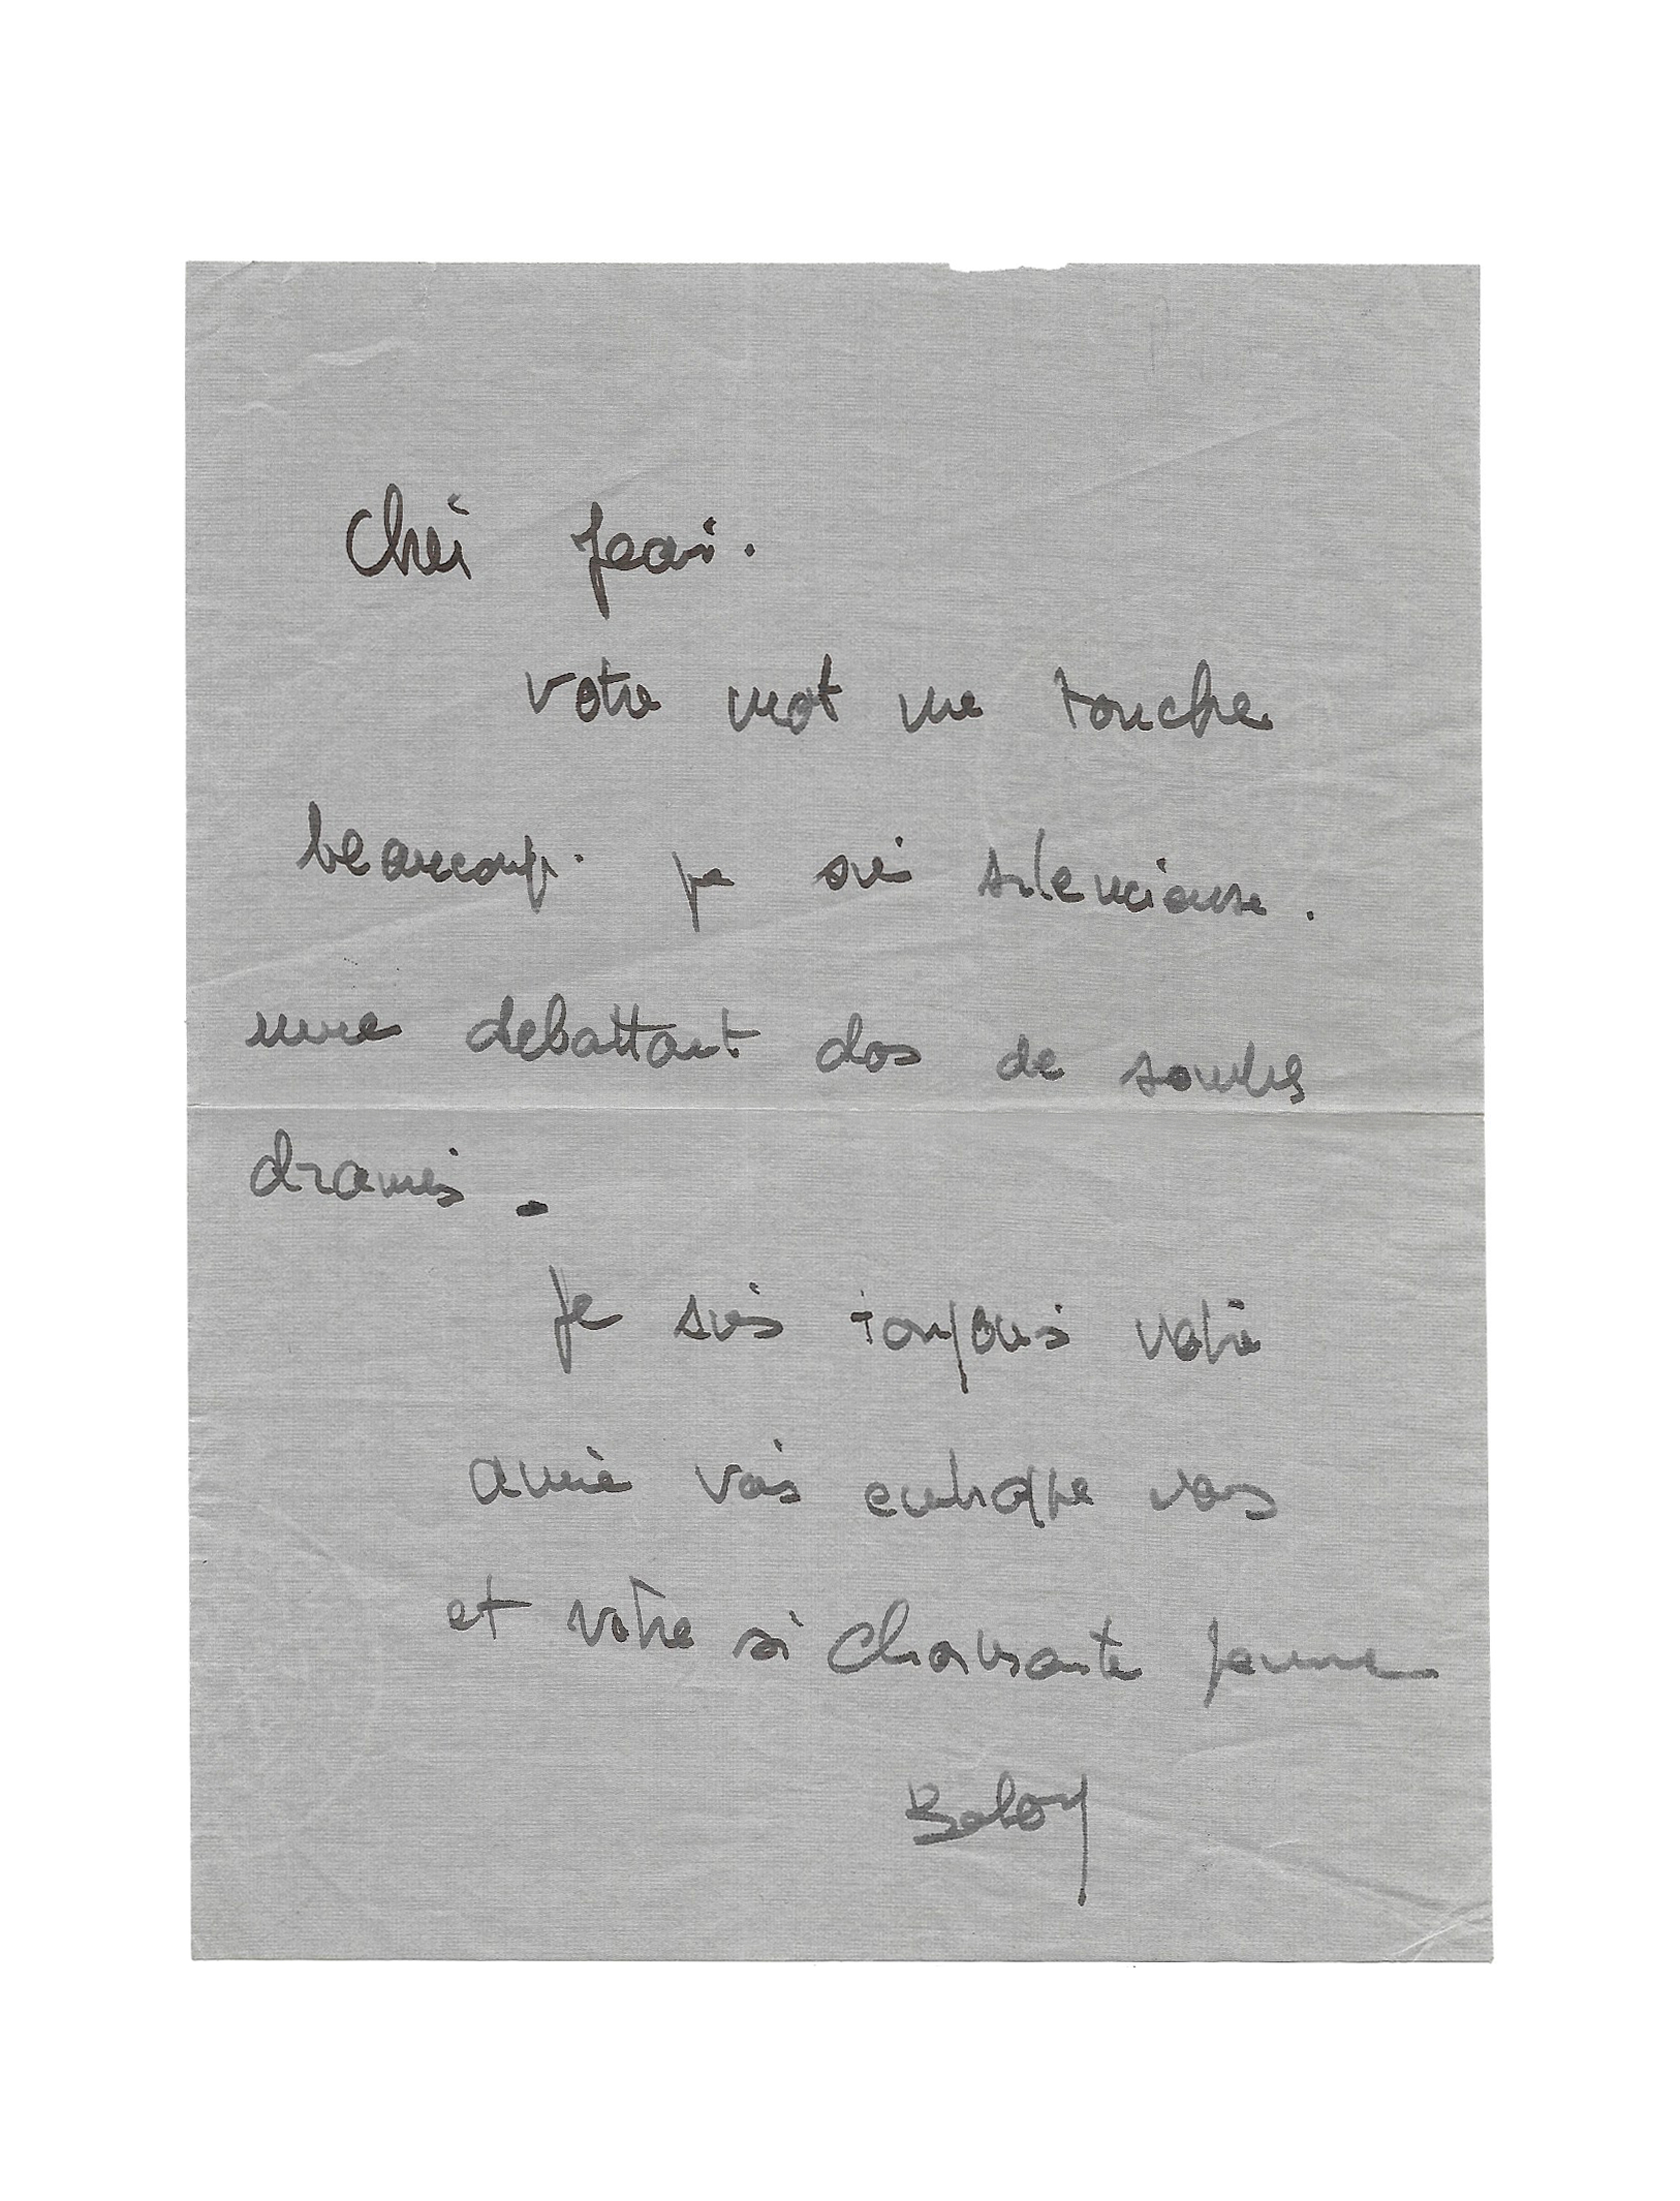 Cher Jean.
votre mot me touche
beaucoup. je suis silencieuse.
me debattant dans de sombres
drames.
Je suis toujours votre
amie vous embrasse vous
et votre si charmante femme